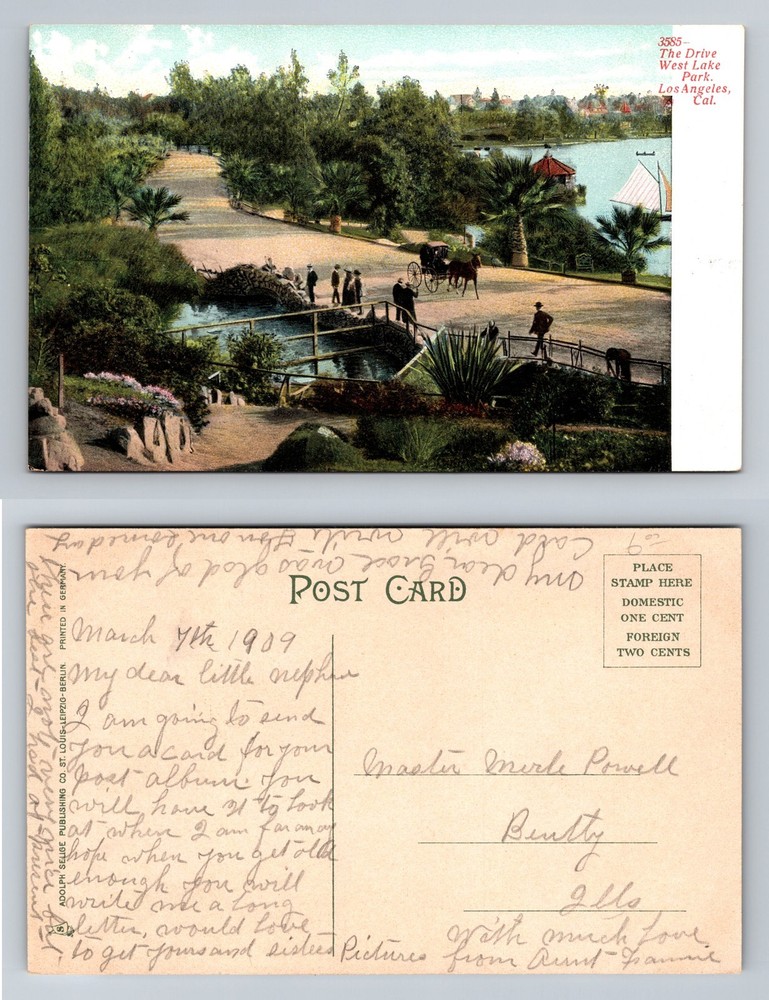 3585-
The Drive
West Lake
Park.
Los Angeles,
Cal.
My dear Grace was glad of your
card will write you one someday
POST CARD
PLACE
STAMP HERE
DOMESTIC
ONE CENT
FOREIGN
TWO CENTS
PRINTED IN GERMANY.
ADOLPH SELIGE PUBLISHING CO. ST. LOUIS-LEIPZIG-BERLIN.
March 7th 1909
My dear little nephew
I am going to send
you a card for your
post album. you
will have it to look
at when I am far away
hope when you get old
enough you will
write me a long
letter, would love
to get yours and sisters
Pictures
With much love
from Aunt Fannie
Master Merle Powell
Bentty
Ills
not very nice but
the best I had at present